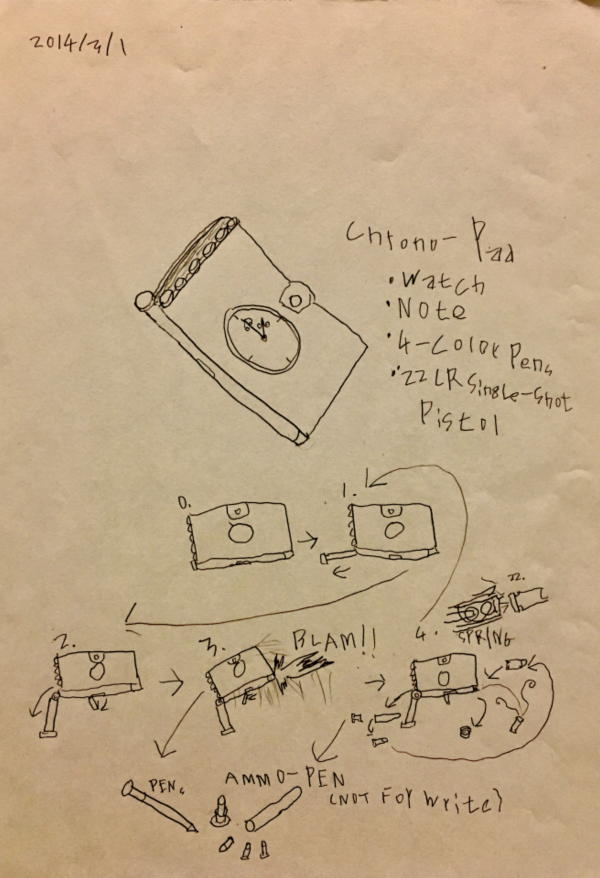 2014/3/1
Chrono-Pad
·Watch
·Note
·4-Color Pens
·22LR Single-Shot
Pistol
0.
1.
2.
3.
BLAM!!
4.
22.
SPRING
PEN.
AMMO-PEN
(NOT FOR Write)